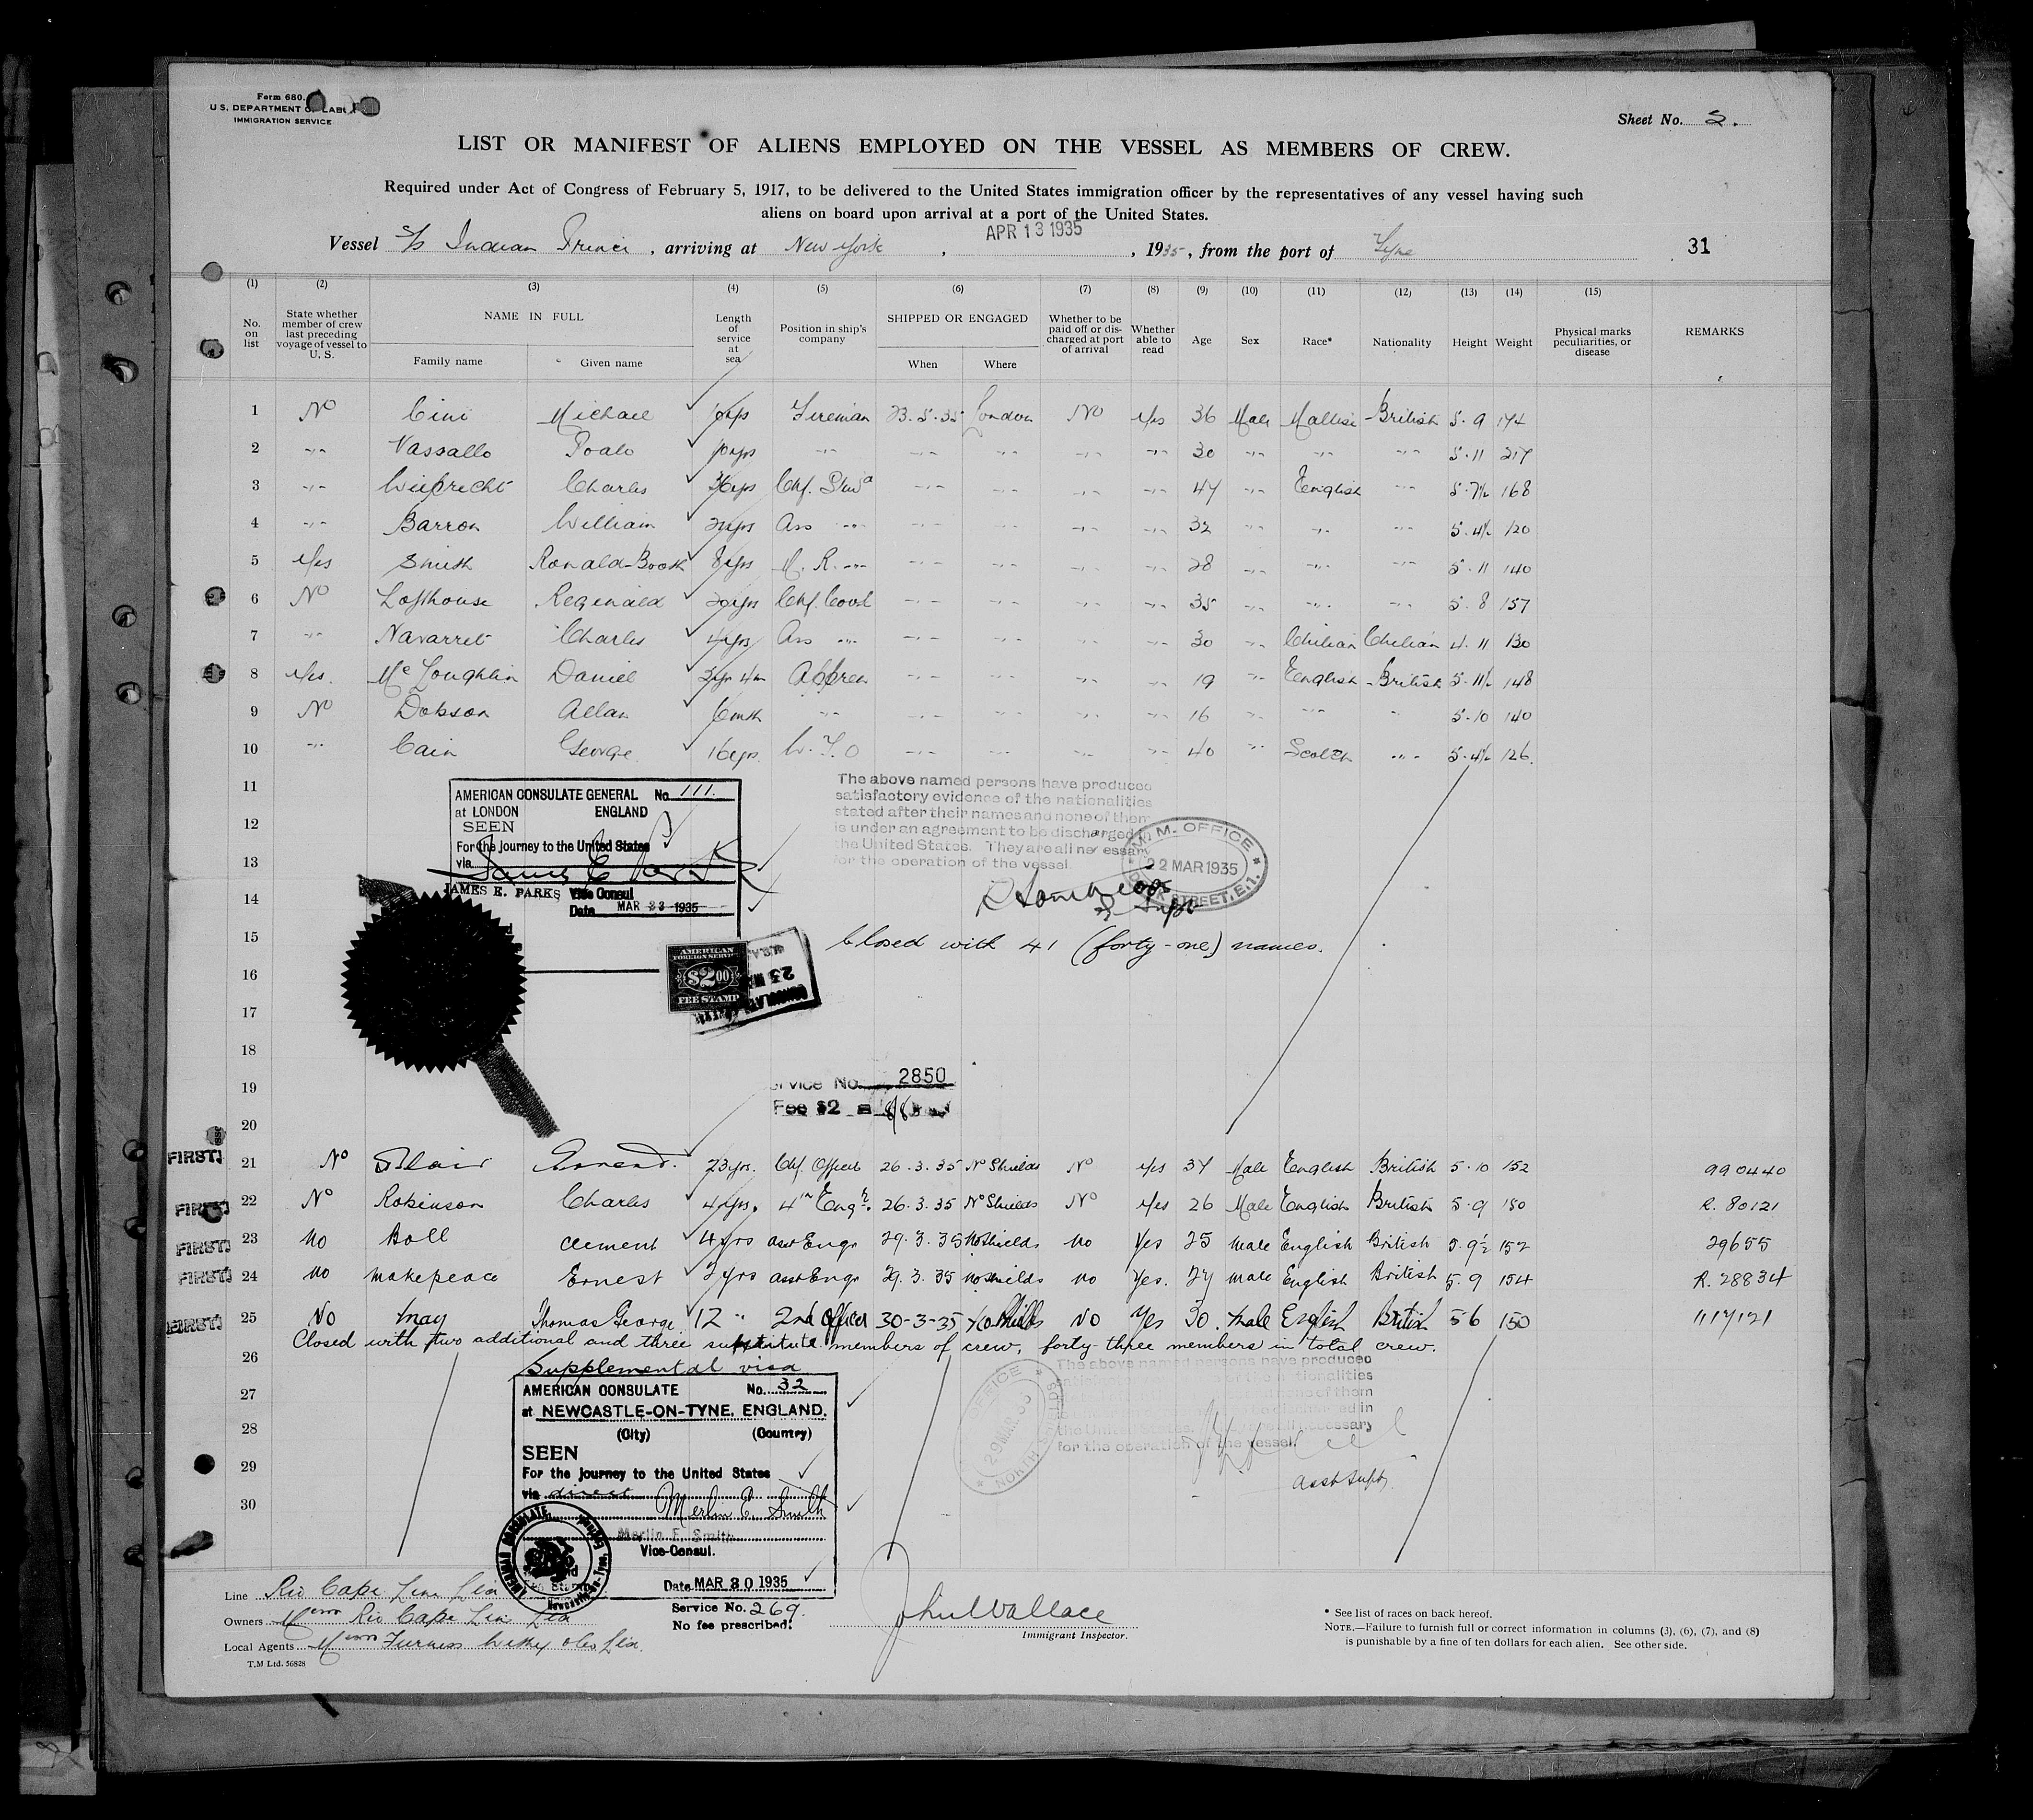 Form 680.
U.S. DEPARTMENT OF LABOR
IMMIGRATION SERVICE
Sheet No. 2.
LIST OR MANIFEST OF ALIENS EMPLOYED ON THE VESSEL AS MEMBERS OF CREW.
Required under Act of Congress of February 5, 1917, to be delivered to the United States immigration officer by the representatives of any vessel having such
aliens on board upon arrival at a port of the United States.
APR 13 1935
Vessel S/s Indian Prince, arriving at New York, , 1935, from the port of Tyne 31
(1) (2) (3) (4) (5) (6) (7) (8) (9) (10) (11) (12) (13) (14) (15)
No. on list State whether member of crew last preceding voyage of vessel to U. S. NAME IN FULL Family name Given name Length of service at sea Position in ship's company SHIPPED OR ENGAGED When Where Whether to be paid off or discharged at port of arrival Whether able to read Age Sex Race* Nationality Height Weight Physical marks peculiarities, or disease REMARKS
1 No Cini Michael Fireman 23.3.35 London No Yes 36 Male Maltese British 5.9 174
2 -"- Vassallo Poalo 10yrs -"- -"- -"- -"- -"- 30 -"- -"- -"- 5.11 217
3 -"- Charles 36yrs Chf. Stwd -"- -"- -"- -"- 47 -"- English -"- 5.7½ 168
4 -"- Barron William Ass -"- -"- -"- -"- -"- 32 -"- -"- -"- 5.4½ 120
5 Yes Smith Ronald-Booth 8yrs M. R. -"- -"- -"- -"- -"- 28 -"- -"- -"- 5.11 140
6 No Lofthouse Reginald 20yrs Chf. Cook -"- -"- -"- -"- 35 -"- -"- -"- 5.8 157
7 -"- Navarret Charles 4yrs Ass -"- -"- -"- -"- -"- 30 -"- Chilian Chilian 4.11 130
8 Yes. McLoughlin Daniel 3yr 4m Appren -"- -"- -"- -"- 19 -"- English British 5.11½ 148
9 No Dobson Allan 6mth -"- -"- -"- -"- -"- 16 -"- -"- " 5.10 140
10 -"- Cain George 16yrs. W.T.O -"- -"- -"- -"- 40 -"- Scotch -"- 5.4½ 126.
11
12
13
14
15
16
17
18
19
20
AMERICAN CONSULATE GENERAL No. 111.
at LONDON ENGLAND
SEEN
For the journey to the United States
via
James E. Parks
JAMES E. PARKS Vice Consul
Date MAR 23 1935
The above named persons have produced
satisfactory evidence of the nationalities
stated after their names and none of them
is under an agreement to be discharged
the United States. They are all necessary
for the operation of the vessel.
M. M. OFFICE
22 MAR 1935
DOCK STREET, E.1.
Closed with 41 (forty-one) names.
AMERICAN
FOREIGN SERVICE
$2.00
FEE STAMP
Service No. 2850
Fee $2
FIRST 21 No Blair 23yrs. Chf. Officer 26.3.35 No Shields No Yes 37 Male English British 5.10 152 990440
FIRST 22 No Robinson Charles 4yrs. 4th Engr. 26.3.35 No Shields No Yes 26 Male English British 5.9 150 R. 80121
FIRST 23 No Boll Clement 4yrs asst Engr 29.3.35 No Shields No Yes 25 male English British 5.9½ 152 29655
FIRST 24 No Makepeace Ernest 2yrs asst Engr 29.3.35 No Shields no Yes. 27 male English British 5.9 154 R. 28834
FIRST 25 No May Thomas George 12 " 2nd Officer 30-3-35 No Shields No Yes 30. Male English British 5 6 150 117121
Closed with two additional and three substitute members of crew, forty-three members in total crew.
26
27
28
29
30
Supplemental visa
AMERICAN CONSULATE No. 32
at NEWCASTLE-ON-TYNE, ENGLAND.
(City) (Country)
SEEN
For the journey to the United States
via direct
Merlin E. Smith
Merlin E. Smith
Vice-Consul.
Date MAR 30 1935
Service No. 269.
No fee prescribed.
The above named persons have produced
nationalities
of them
in
the United States. necessary
for the operation of the vessel.
29 MAR 35
NORTH
Asst Supt
Line Rio Cape Line Ltd
Owners Messrs Rio Cape Line Ltd
Local Agents Messrs Furness Withy & Co Ltd.
T.M Ltd. 56828
John Wallace
Immigrant Inspector.
* See list of races on back hereof.
NOTE.—Failure to furnish full or correct information in columns (3), (6), (7), and (8)
is punishable by a fine of ten dollars for each alien. See other side.